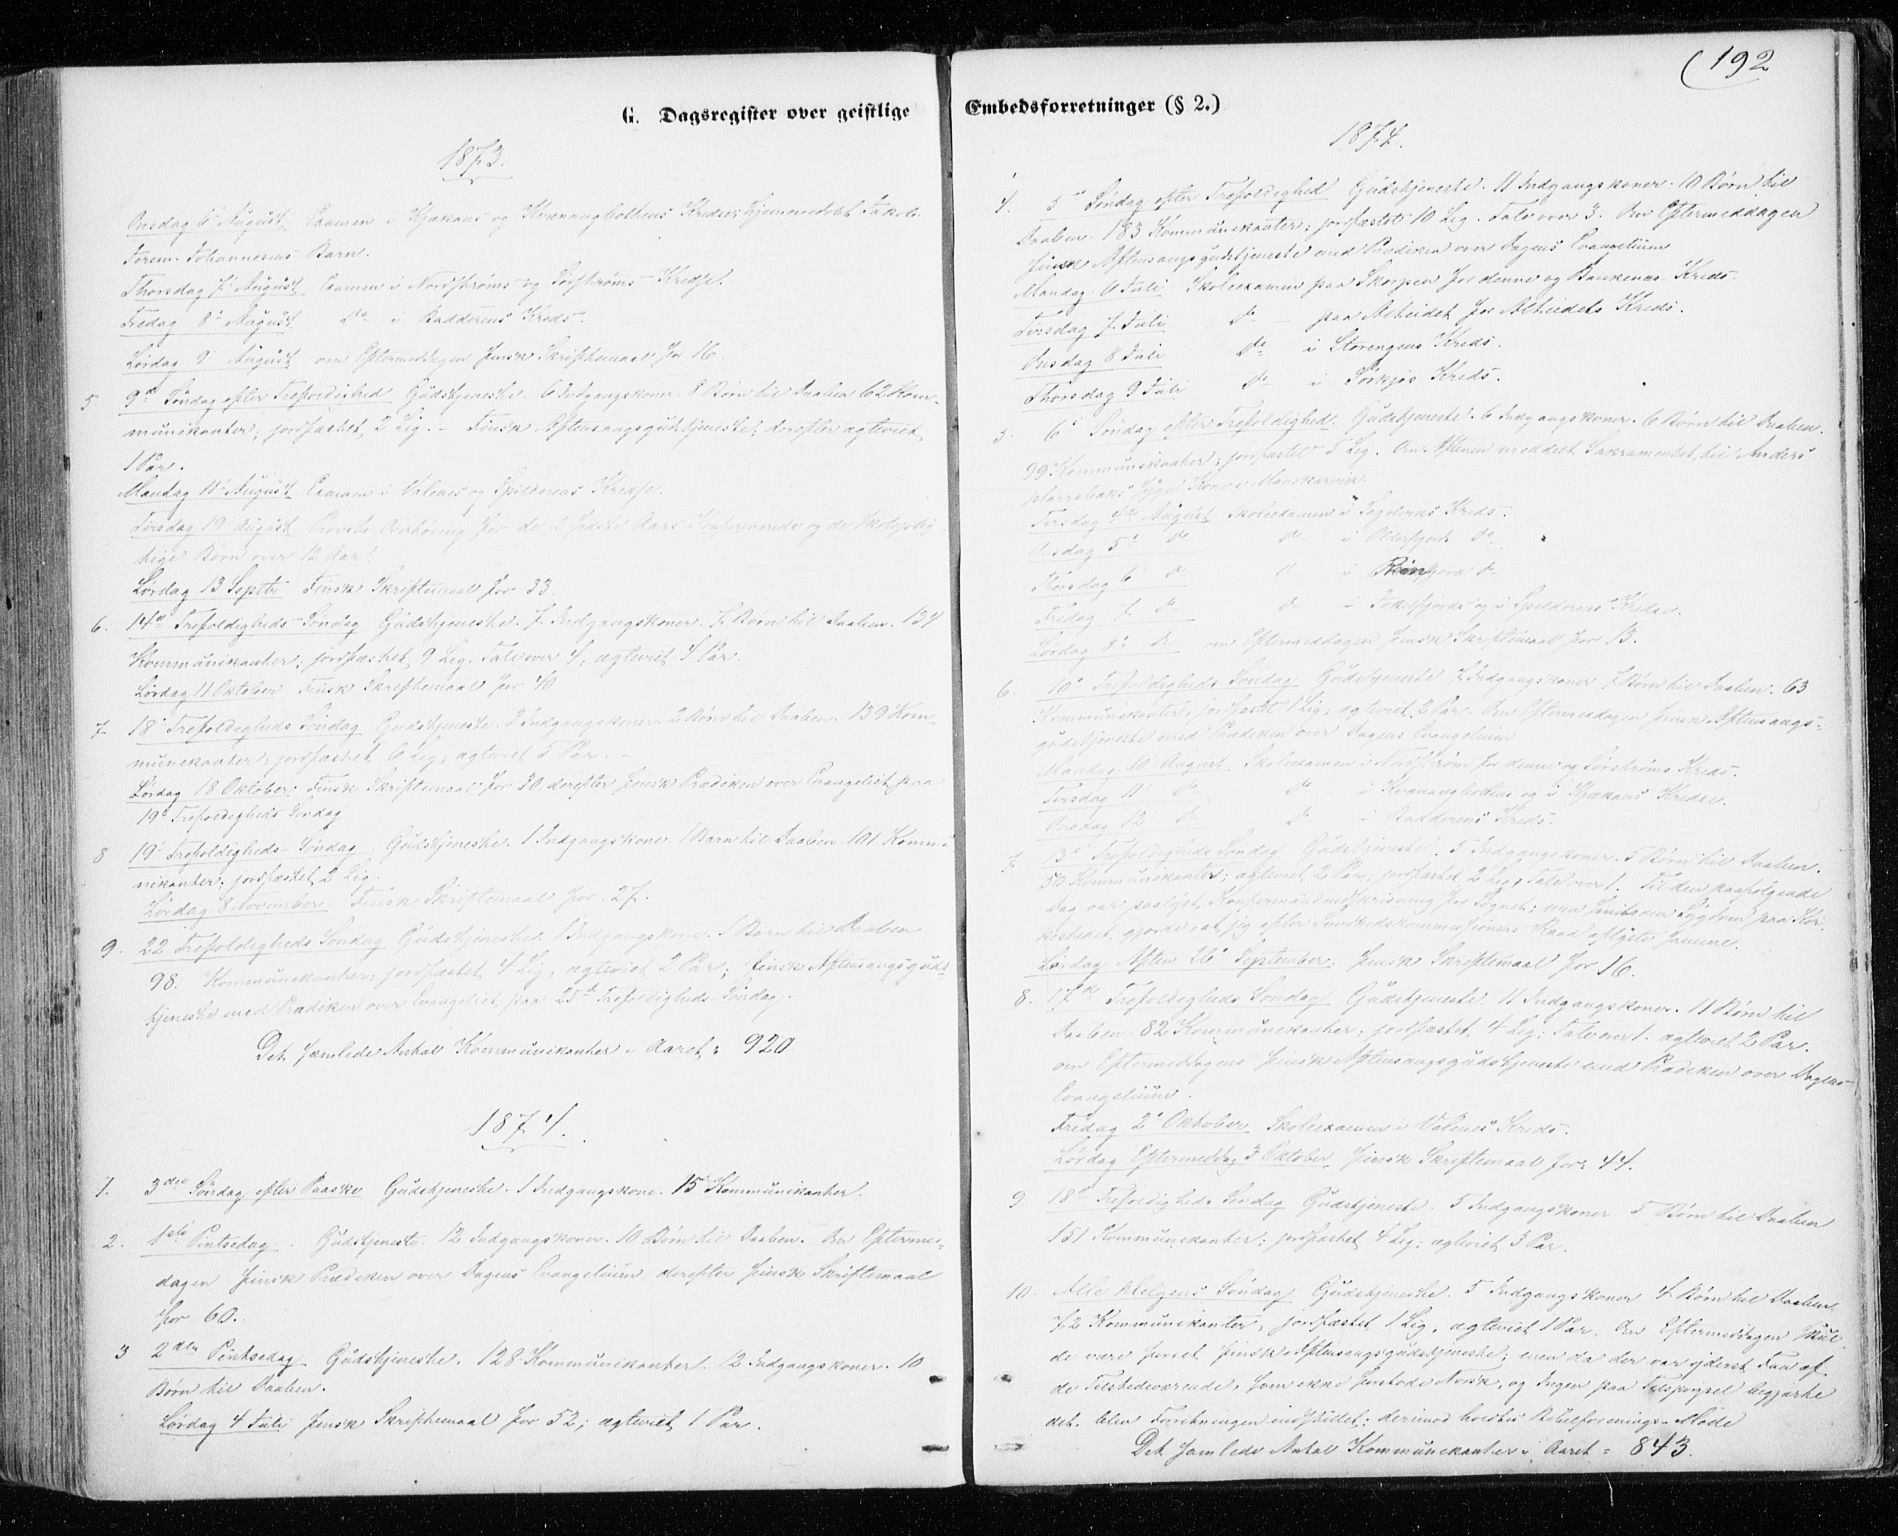 (192
G. Dagsregister over geistlige
Embedsforretninger (§ 2.)
1873.
Onsdag 6te August. Examen i Kjækans og Kvænangbottens Kredse; hjemmedøbt
Johannesens Barn.
Thorsdag 7de August Examen i Nordstrøms og Sørstrøms Kredse.
Fredag 8de August do i Badderens Kreds.
Lørdag 9 August om Eftermiddagen finsk Skriftemaal for 16.
5. 9de Søndag efter Trefoldighed Gudstjeneste. 6 Indgangskoner. 8 Børn til Daaben 62 Kom-
munikanter; jordfæstet 2 Lig. - Finsk Aftensangsgudstjeneste, derefter ægteviet
1 Par.
Mandag 11te August Examen i Valenes og Spilderens Kredse.
Tirsdag 19 August Provste-Overhøring for de 3 sidste Aars Konfirmerede og de skolepligtige
Børn over 12 Aar.
Lørdag 13 Septbr Finsk Skriftemaal for 33.
6. 14de Trefoldigheds-Søndag Gudstjeneste. 7 Indgangskoner. 7 Børn til Daaben. 134
Kommunikanter; jordfæstet 9 Lig. Tale over 4; ægteviet 4 Par.
Lørdag 11 Oktober Finsk Skriftemaal for 40
7. 18de Trefoldigheds Søndag Gudstjeneste. 2 Indgangskoner. 2 Børn til Daaben. 139 Kom-
munikanter; jordfæstet 6 Lig; ægteviet 5 Par. -
Lørdag 18 Oktober. Finsk Skriftemaal for 30 derefter finsk Prædiken over Evangeliet paa
19de Trefoldigheds Søndag
8 19de Trefoldigheds-Søndag Gudstjeneste. 1 Indgangskone. 1 Barn til Daaben. 101 Kommu-
nikanter; jordfæstet 2 Lig.
Lørdag 8 November. Finsk Skriftemaal for 27.
9. 22 Trefoldigheds Søndag Gudstjeneste. 1 Indgangskone. 1 Barn til Daaben
98. Kommunikanter; jordfæstet 4 Lig, ægteviet 2 Par; finsk Aftensangsguds-
tjeneste med Prædiken over Evangeliet paa 23de Trefoldigheds Søndag.
Det samlede Antal Kommunikanter i Aaret: 920
1874.
1. 3die Søndag efter Paaske Gudstjeneste. 1 Indgangskone. 15 Kommunikanter.
2. 1ste Pintsedag. Gudstjeneste. 12 Indgangskoner. 10 Børn til Daaben. Om Eftermid-
dagen finsk Prædiken over Dagens Evangelium, derefter finsk Skriftemaal
for 60.
3 2den Pintsedag Gudstjeneste. 128 Kommunikanter. 12 Indgangskoner. 10
Børn til Daaben.
Lørdag 4 Juli finsk Skriftemaal for 52; ægteviet 1 Par.
1874.
4. 5te Søndag efter Trefoldighed Gudstjeneste. 11 Indgangskoner. 10 Børn til
Daaben. 183 Kommunikanter; jordfæstet 10 Lig. Tale over 3. Om Eftermiddagen
finsk Aftensangsgudstjeneste med Prædiken over Dagens Evangelium
Mandag 6 Juli Skoleexamen paa Skorpen for denne og Baukenes Kreds.
Tirsdag 7 Juli do - paa Alteidet for Alteidets Kreds.
Onsdag 8 Juli do i Storengens Kreds.
Thorsdag 9 Juli do i Sørkjos Kreds.
5. 6te Søndag efter Trefoldighed. Gudstjeneste. 6 Indgangskoner. 6 Børn til Daaben.
99 Kommunikanter; jordfæstet 5 Lig. Om Aftenen meddelt Sakramentet til Anders
syge Kone i Manskarvik
Tirsdag 4de August Skoleexamen i Segelvens Kreds.
Onsdag 5te do do i Olderfjords do
Thorsdag 6te do do i Reinfjord do
Fredag 7. do do i Jøkelfjords og i Spilderens Kredse.
Lørdag 8de do om Eftermiddagen finsk Skriftemaal for 13.
6. 10de Trefoldigheds Søndag Gudstjeneste 7 Indgangskoner 7 Børn til Daaben. 63
Kommunikanter, jordfæstet 1 Lig; ægteviet 2 Par. Om Eftermiddagen finsk Aftensangs-
gudstjeneste med Prædiken over Dagens Evangelium
Mandag 10 August. Skoleexamen i Nordstrøm for denne og Sørstrøms Kreds.
Tirsdag 11te do do i Kvænangbottens og i Kjækans Kredse.
Onsdag 12te do do i Badderens Kreds.
7. 13de Trefoldigheds Søndag Gudstjeneste. 5 Indgangskoner. 5 Børn til Daaben.
50 Kommunikanter; ægteviet 2 Par; jordfæstet 2 Lig, Tale over 1. Til den paafølgende
Dag var paalyst Konfirmandindskrivning for Sognet; men smitsom Sygdom paa Kir-
kestedet gjorde, at jeg efter Sundhedskommissionens Raad aflyste samme.
Lørdag Aften 26de September. finsk Skriftemaal for 16.
8. 17de Trefoldigheds Søndag Gudstjeneste. 11 Indgangskoner. 11 Børn til
Daaben. 82 Kommunikanter; jordfæstet 4 Lig. Tale over 1. ægteviet 2 Par.
om Eftermiddagen finsk Aftensangsgudstjeneste med Prædiken over Dagens
Evangelium.
Fredag 2de Oktober Skoleexamen i Valenes Kreds.
Lørdag Eftermiddag 3 Oktober. finsk Skriftemaal for 44.
9 18de Trefoldigheds Søndag Gudstjeneste. 5 Indgangskoner 5 Børn til Daaben
151 Kommunikanter; jordfæstet 4 Lig; ægteviet 3 Par.
10. Alle Helgens Søndag Gudstjeneste. 5 Indgangskoner 4 Børn til Daaben
72 Kommunikanter, jordfæstet 1 Lig, ægteviet 1 Par. Om Eftermiddagen skul-
de være finsk Aftensangsgudstjeneste; men da der var yderst Faa af
de Tilstedeværende, som ikke forstode Norsk, og Ingen paa Tilspørgsel begjærte
det, blev Forretningen indstillet; derimod holdtes Bibelforenings-Møde
Det samlede Antal Kommunikanter i Aaret = 843.